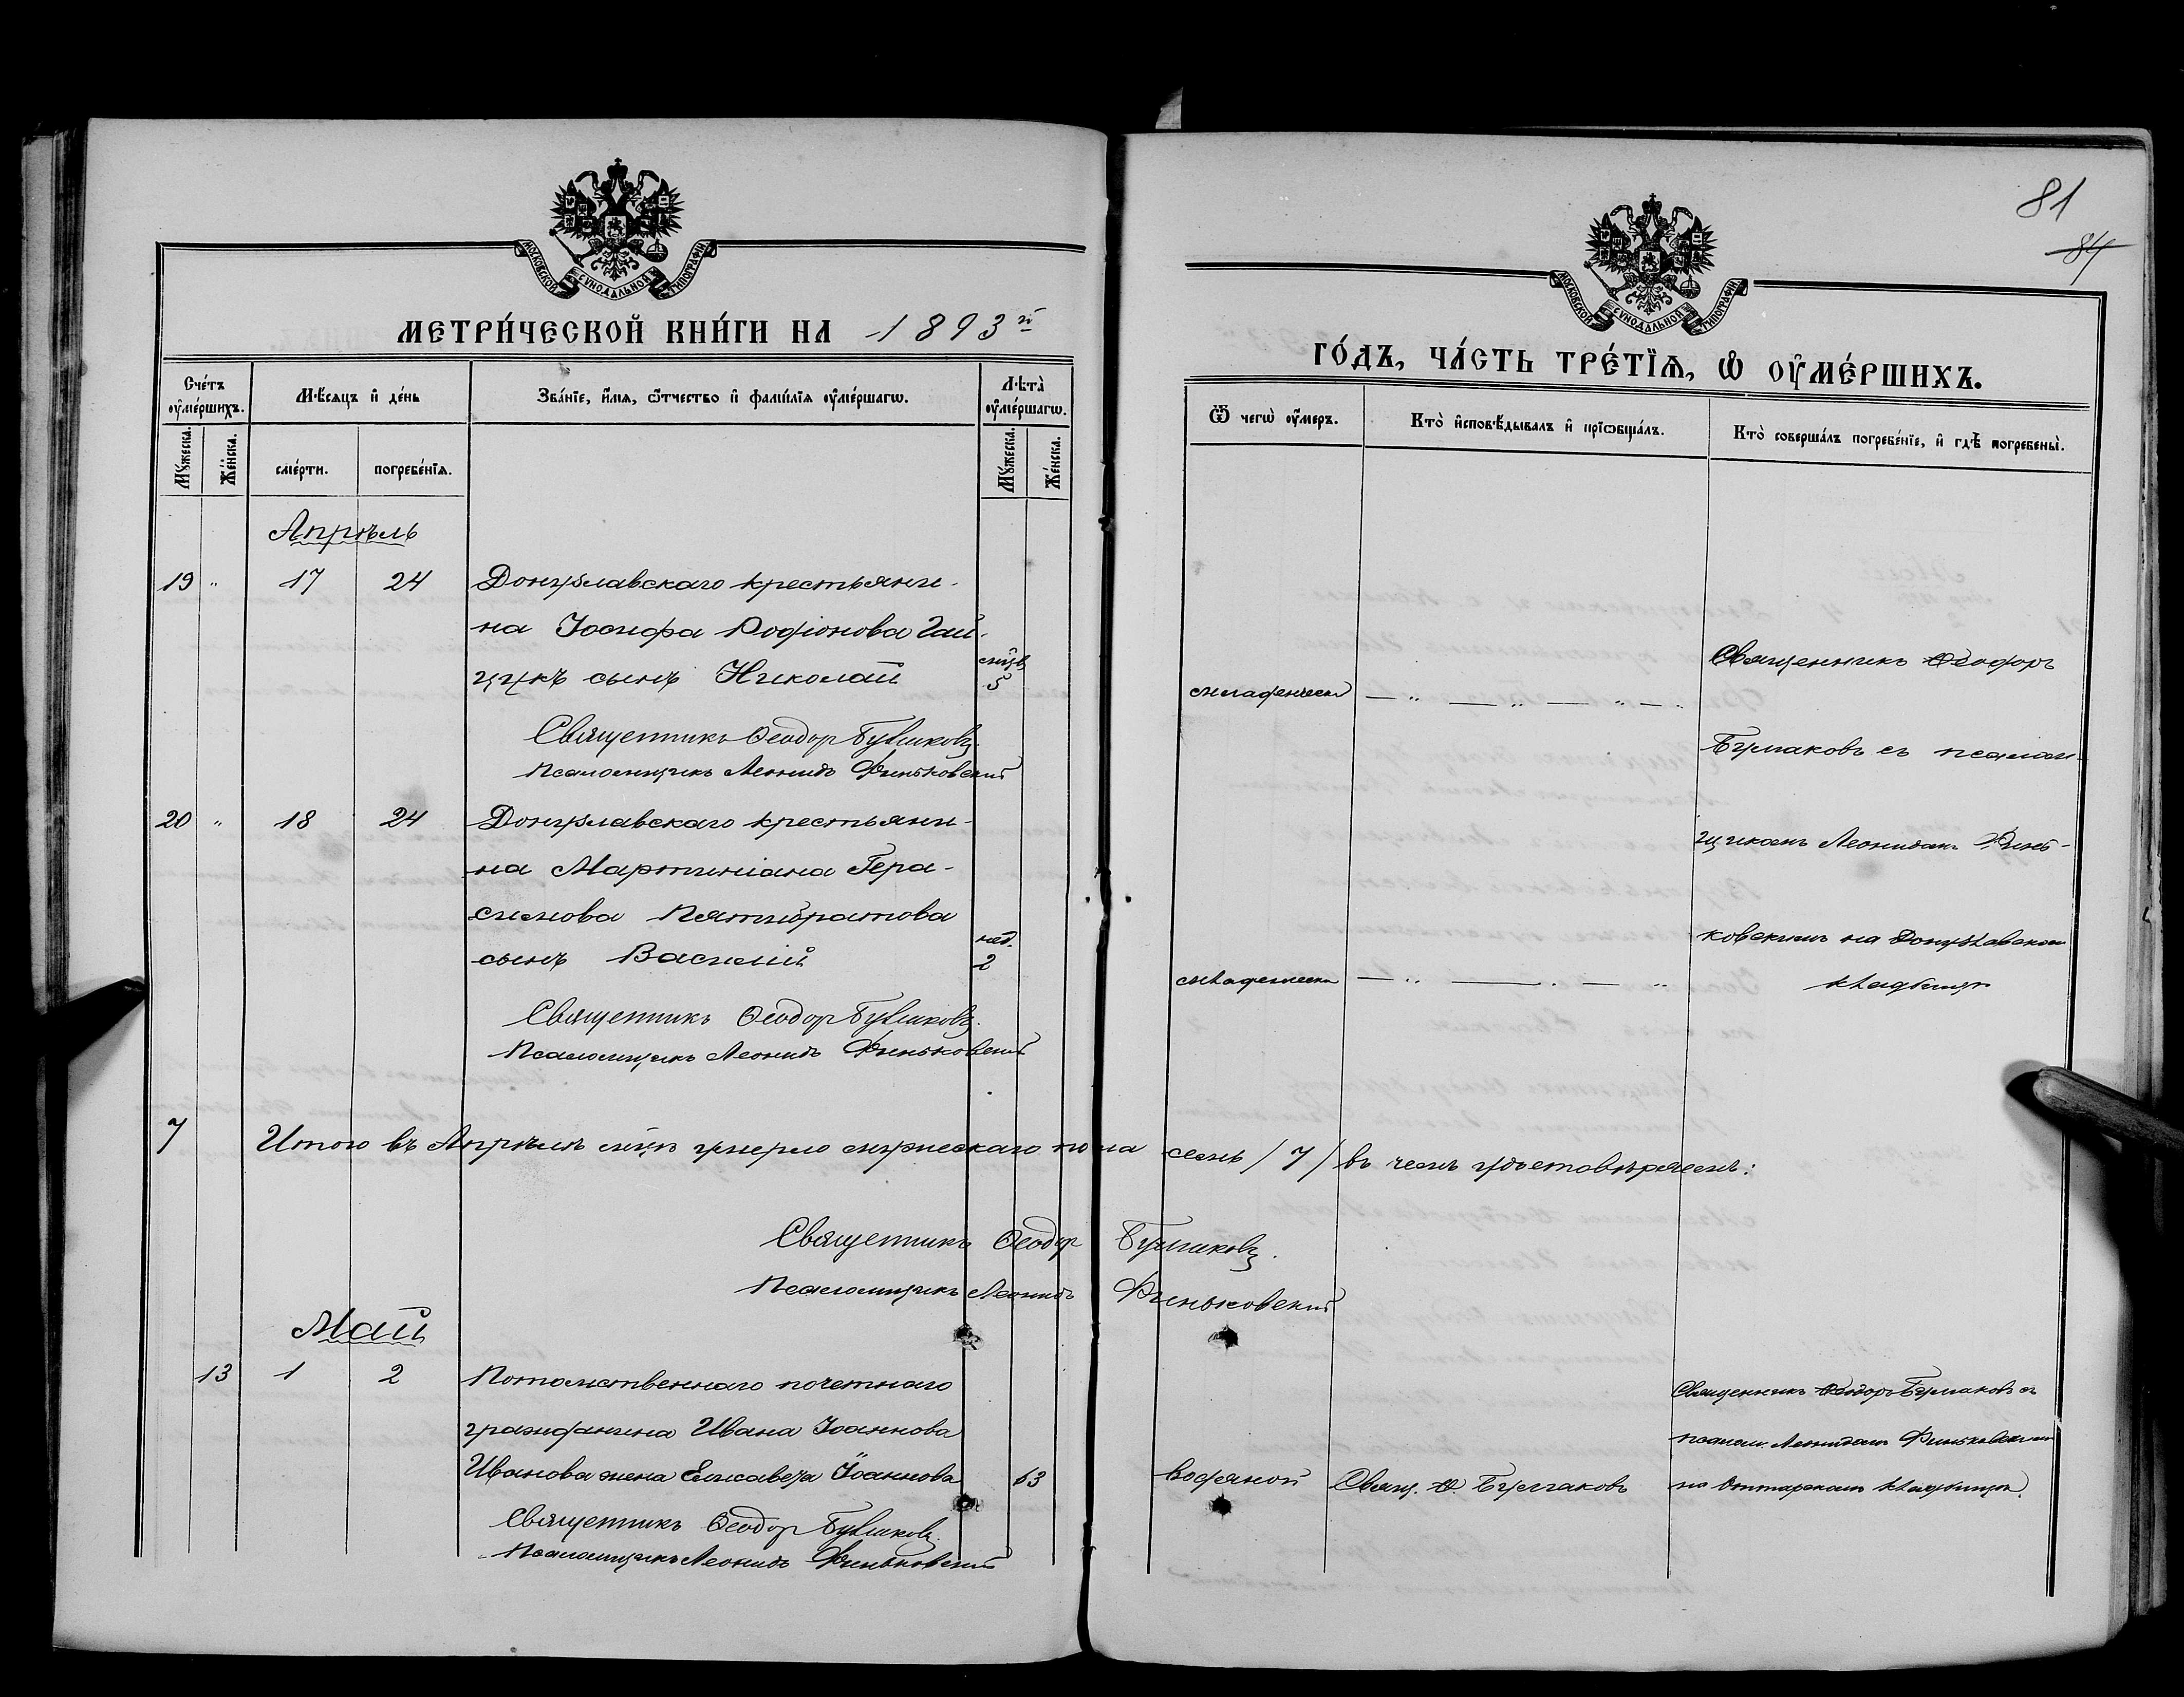 МОСКОВСКОЙ СѴНОДАЛЬНОЙ ТИПОГРАФІИ
МЕТРИ́ЧЕСКОЙ КНИ́ГИ НА 1893 й
Сче́тъ оу҆ме́ршихъ.
Мѣ́сяцъ и҆ де́нь
Зва́нїе, и҆́мѧ, ѻ҆́тчество и҆ фами́лїѧ оу҆ме́ршагѡ.
Лѣ̀та оу҆ме́ршагѡ.
Мꙋ́жеска.
Же́нска.
сме́рти.
погребе́нїѧ.
Мꙋ́жеска.
Же́нска.
Апрѣль
19 " 17 24 Донузлавскаго крестьяни-
на Іосифа Родіонова Гай-
сынъ Николай
мѣс. 5
Священникъ Ѳеодоръ Булгаковъ.
Псаломщикъ Леонидъ Финьковскій
20 " 18 24 Донузлавскаго крестьяни-
на Мартиніана Гера-
симова Пятибратова
сынъ Василій
нед. 2
Священникъ Ѳеодоръ Булгаковъ.
Псаломщикъ Леонидъ Финьковскій
7 Итого въ Апрѣлѣ мѣс. умерло мужескаго пола семь /7/ въ чемъ удостовѣряемъ:
Священникъ Ѳеодоръ Булгаковъ.
Псаломщикъ Леонидъ Финьковскій
Май
13 1 2 Потомственнаго почетнаго
гражданина Ивана Іоаннова
Иванова жена Елисавета Іоаннова 63
Священникъ Ѳеодоръ Булгаковъ.
Псаломщикъ Леонидъ Финьковскій
81
84
МОСКОВСКОЙ СѴНОДАЛЬНОЙ ТИПОГРАФІИ
ГО́ДЪ, ЧА́СТЬ ТРЕ́ТЇѦ, Ѡ҆ ОУ҆МЕ́РШИХЪ.
Ѿ чегѡ̀ оу҆́меръ.
Кто̀ и҆сповѣ́дывалъ и҆ прїѡбща́лъ.
Кто̀ соверша́лъ погребе́нїе, и҆ гдѣ̀ погребены̀.
младенческ. — " — " — " — "
Священникъ Ѳеодоръ
Булгаковъ съ псалом-
щикомъ Леонидомъ Финь-
ковскимъ на Донузлавском
кладбищѣ
младенческ. — " — " — "
водяной
Свящ. Ѳ. Булгаковъ
Священникъ Ѳеодоръ Булгаковъ съ
псалом. Леонидомъ Финьковским
на кладбищѣ.